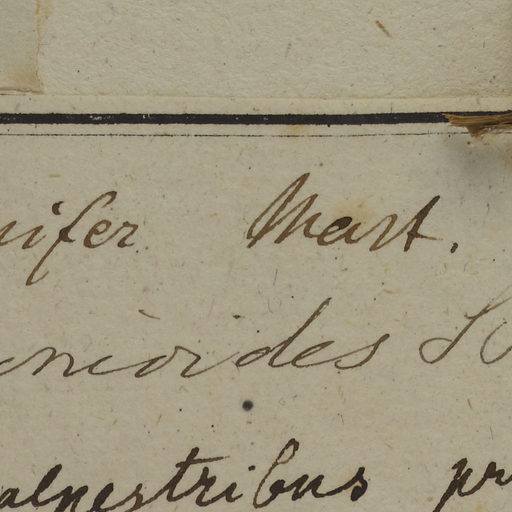 nifer Mart.
nicoides S
alpestribus pr